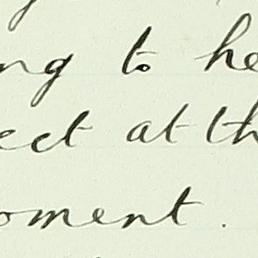 ng to he
ect at th
oment.